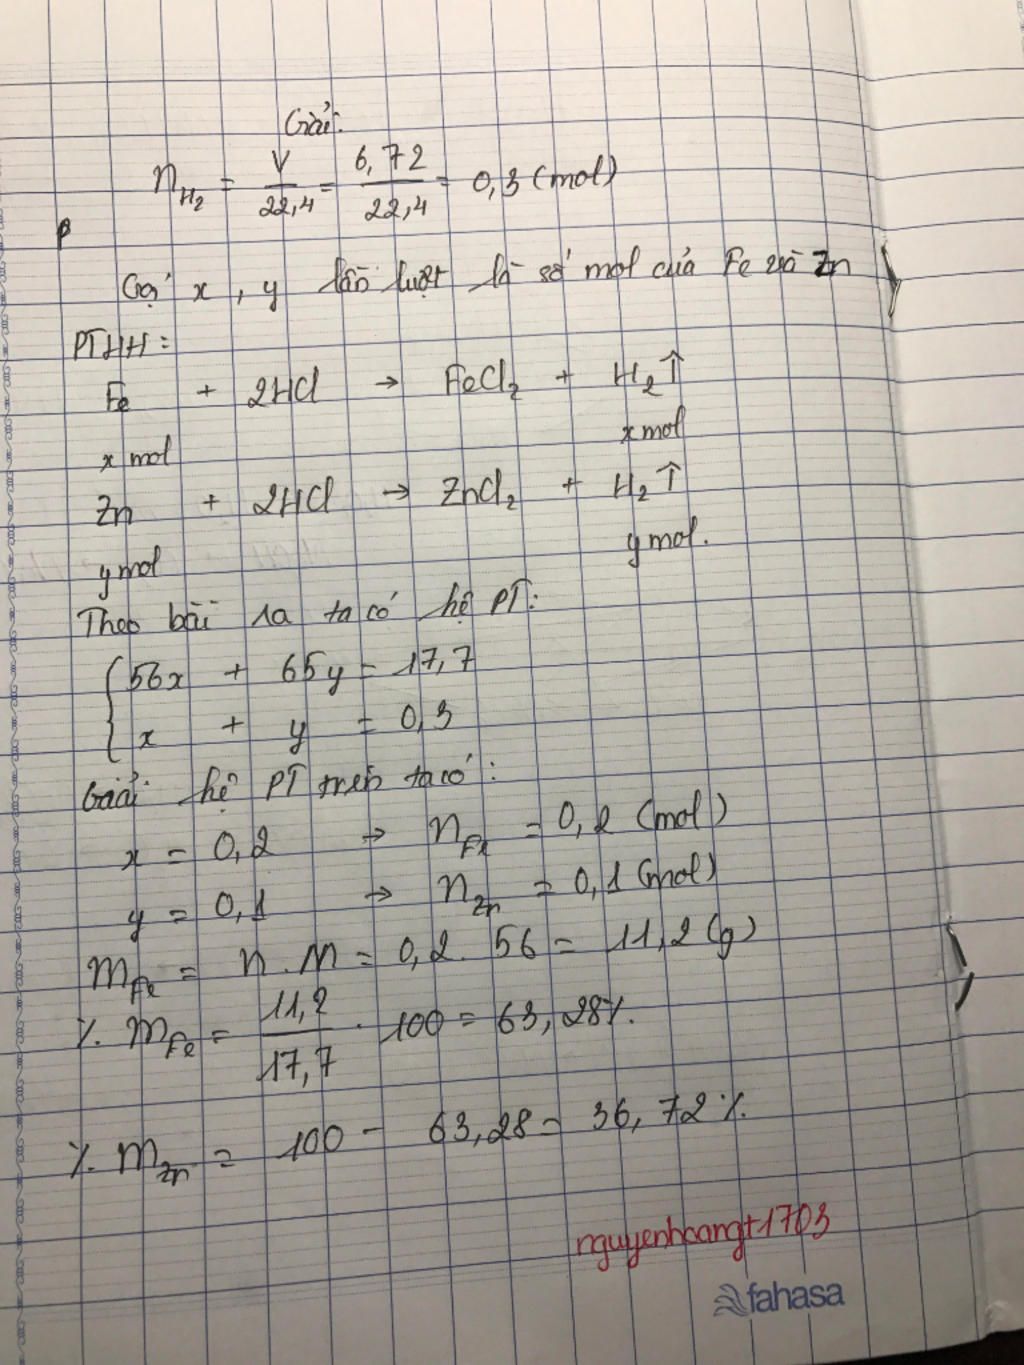 Giải:
n_{H_2} = \frac{V}{22,4} = \frac{6,72}{22,4} = 0,3 (mol)
Gọi x, y lần lượt là số mol của Fe và Zn
PTHH:
Fe + 2HCl → FeCl₂ + H₂↑
x mol x mol
Zn + 2HCl → ZnCl₂ + H₂↑
y mol y mol.
Theo bài ra ta có hệ PT:
{56x + 65y = 17,7
x + y = 0,3
Giải hệ PT trên ta có:
x = 0,2 → n_{Fe} = 0,2 (mol)
y = 0,1 → n_{Zn} = 0,1 (mol)
m_{Fe} = n . M = 0,2 . 56 = 11,2 (g)
% m_{Fe} = \frac{11,2}{17,7} . 100 = 63,28%.
% m_{Zn} = 100 - 63,28 = 36,72%.
nguyenhoangt1703
fahasa